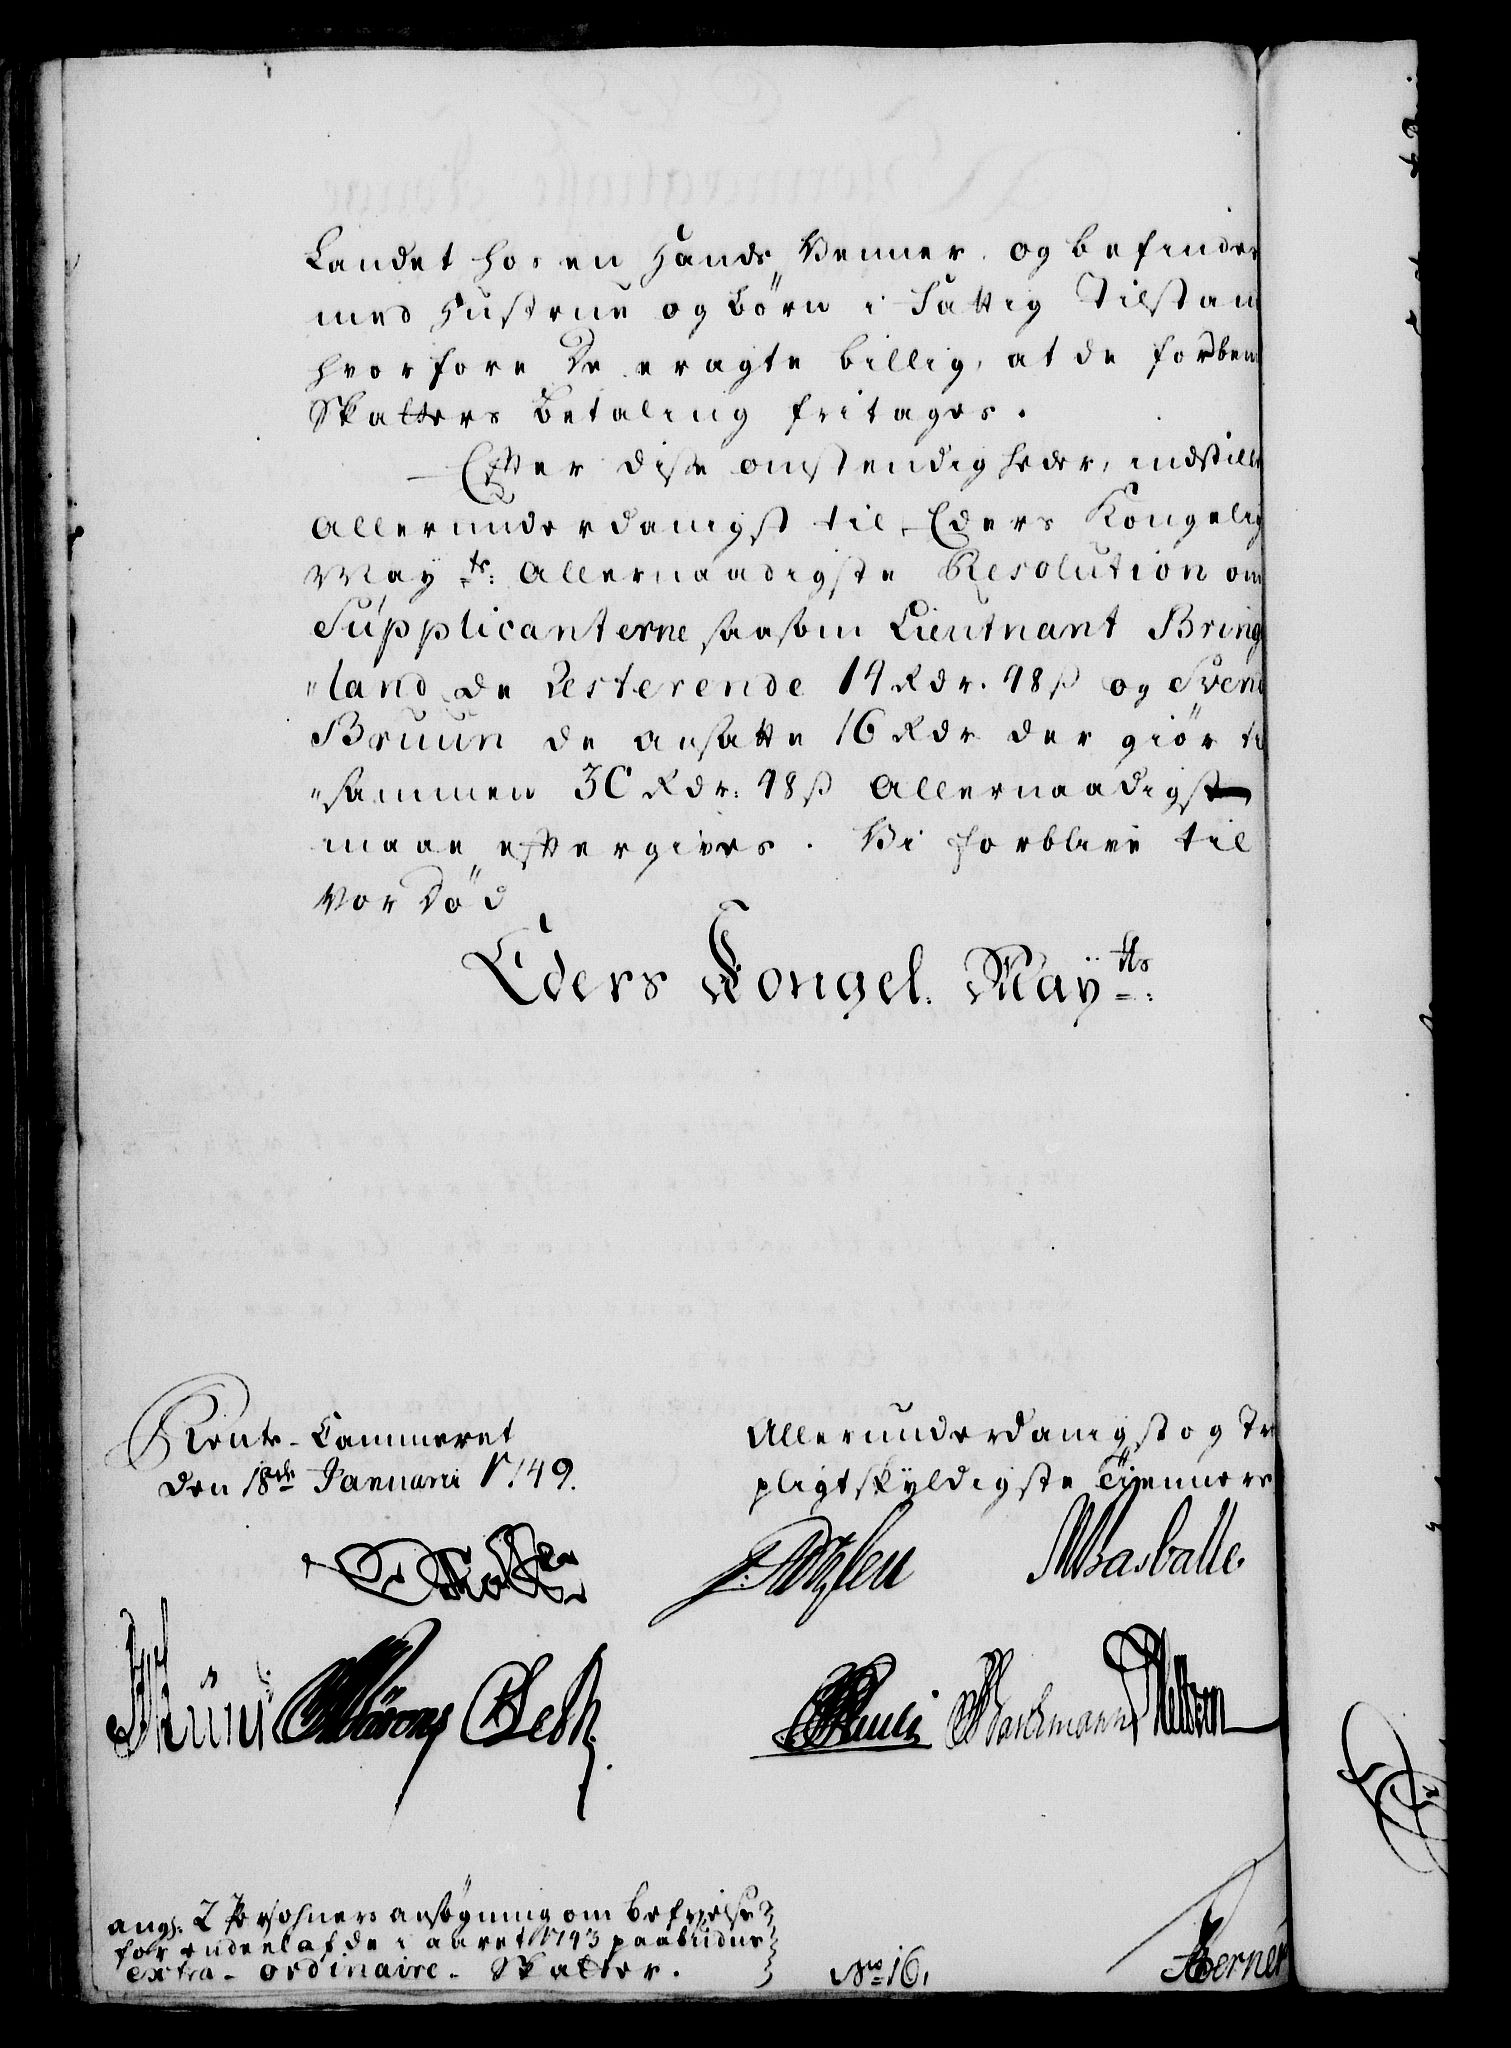 Landet hos en Hands Venner, og befinder
med Hustrue og Börn i Fattig Tilstan
hvorfore De eragte billig, at de forbem
Skatters betaling fritages.
Efter disse omstendigheder, indstille
Allerunderdanigst til Eders Kongelig
Mayts: Allernaadigste Resolution om
Supplicanterne saasom Lieutnant Bring
"land de Resterende 14 Rdr. 48 ß og Svend
Bruun de ansatte 16 Rdr der giör til
"sammen 30 Rdr: 48 ß Allernaadigst
maae eftergives. Vi forblive til
vor Död
Eders Kongel. Maytts:
Rente-Cammeret
den 18de Januarii 1749.
Allerunderdanigst og Tr
pligtskyldigste Tiennere
Wasballe
Pauli
ang: 2 Persohners ansögning om befrielse
for endeel af de i aaret 1743 paabudne
extra-ordinaire-Skatter.
No 16.